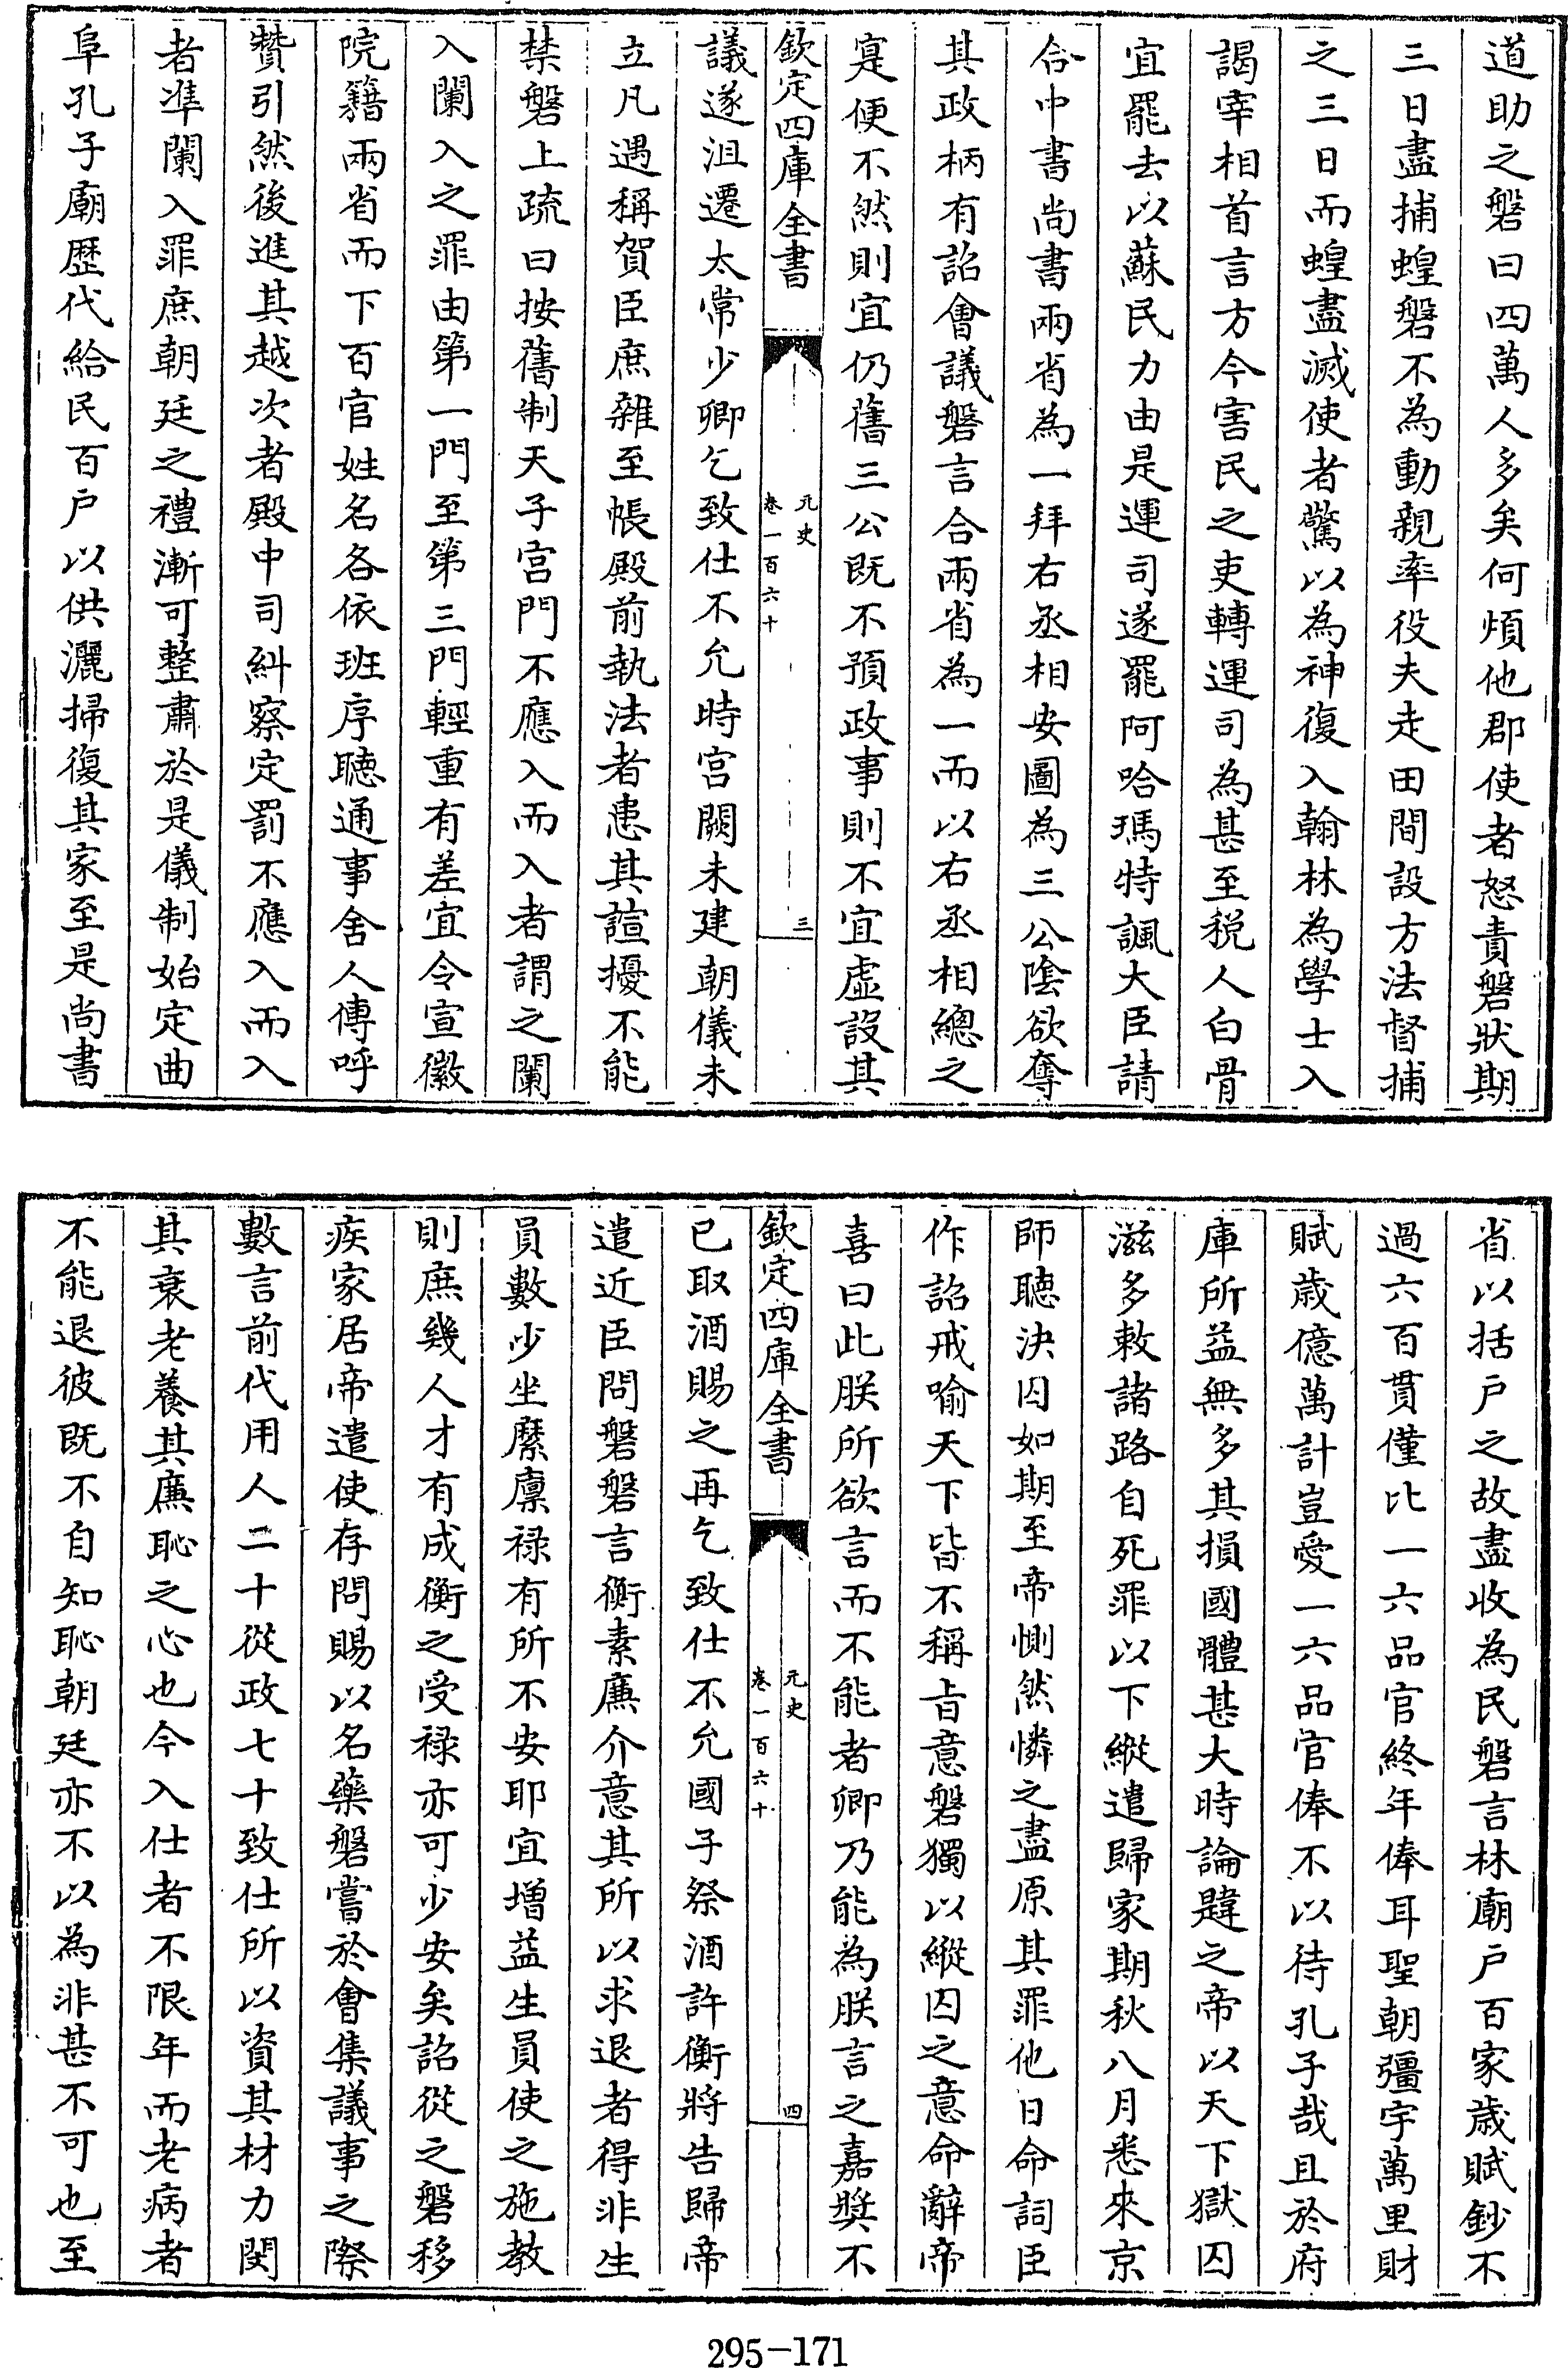 道助之磐曰四萬人多矣何煩他郡使者怒責磐狀期
三日盡捕蝗磐不為動親率役夫走田間設方法督捕
之三日而蝗盡滅使者驚以為神復入翰林為學士入
謁宰相首言方今害民之吏轉運司為甚至税人白骨
宜罷去以蘇民力由是運司遂罷阿哈瑪特諷大臣請
合中書尚書兩省為一拜右丞相安圖為三公陰欲奪
其政柄有詔會議磐言合兩省為一而以右丞相總之
寔便不然則宜仍舊三公既不預政事則不宜虛設其
欽定四庫全書
元史
卷一百六十
三
議遂沮遷太常少卿乞致仕不允時宫闕未建朝儀未
立凡遇稱賀臣庶雜至帳殿前執法者患其諠擾不能
禁磐上疏曰按舊制天子宫門不應入而入者謂之闌
入闌入之罪由第一門至第三門輕重有差宜令宣徽
院籍兩省而下百官姓名各依班序聽通事舍人傳呼
贊引然後進其越次者殿中司糾察定罰不應入而入
者準闌入罪庶朝廷之禮漸可整肅於是儀制始定曲
阜孔子廟歴代給民百户以供灑掃復其家至是尚書
省以括户之故盡收為民磐言林廟户百家歲賦鈔不
過六百貫僅比一六品官終年俸耳聖朝疆宇萬里財
賦歲億萬計豈愛一六品官俸不以待孔子哉且於府
庫所益無多其損國體甚大時論韙之帝以天下獄囚
滋多敕諸路自死罪以下縱遣歸家期秋八月悉來京
師聽決囚如期至帝惻然憐之盡原其罪他日命詞臣
作詔戒喻天下皆不稱旨意磐獨以縱囚之意命辭帝
喜曰此朕所欲言而不能者卿乃能為朕言之嘉奬不
欽定四庫全書
元史
卷一百六十
四
已取酒賜之再乞致仕不允國子祭酒許衡將告歸帝
遣近臣問磐磐言衡素廉介意其所以求退者得非生
員數少坐縻廪禄有所不安耶宜增益生員使之施教
則庶幾人才有成衡之受禄亦可少安矣詔從之磐移
疾家居帝遣使存問賜以名藥磐嘗於會集議事之際
數言前代用人二十從政七十致仕所以資其材力閔
其衰老養其廉恥之心也今入仕者不限年而老病者
不能退彼既不自知恥朝廷亦不以為非甚不可也至
295-171